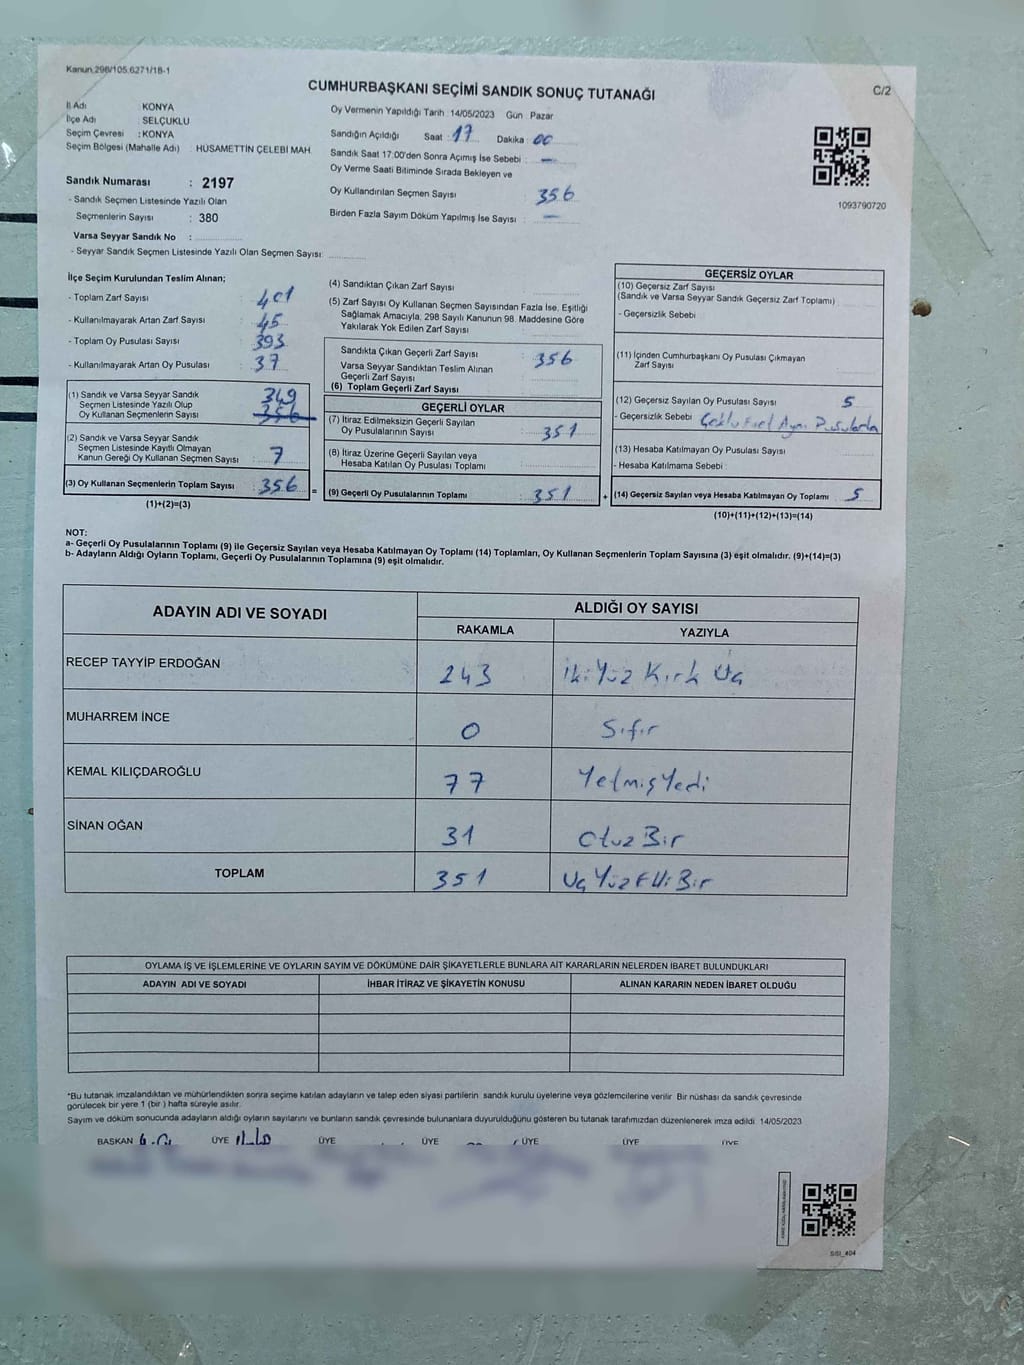 Kanun 298/105.6271/18-1
CUMHURBAŞKANI SEÇİMİ SANDIK SONUÇ TUTANAĞI
C/2
İl Adı KONYA
İlçe Adı : SELÇUKLU
Seçim Çevresi : KONYA
Seçim Bölgesi (Mahalle Adı) : HÜSAMETTİN ÇELEBİ MAH.
Sandık Numarası : 2197
- Sandık Seçmen Listesinde Yazılı Olan
Seçmenlerin Sayısı : 380
Varsa Seyyar Sandık No :
- Seyyar Sandık Seçmen Listesinde Yazılı Olan Seçmen Sayısı:
Oy Vermenin Yapıldığı Tarih 14/05/2023 Gün Pazar
Sandığın Açıldığı Saat : 17 Dakika : 00
Sandık Saat 17:00'den Sonra Açımış İse Sebebi : —
Oy Verme Saati Bitiminde Sırada Bekleyen ve
Oy Kullandırılan Seçmen Sayısı 356
Birden Fazla Sayım Döküm Yapılmış İse Sayısı : —
1093790720
İlçe Seçim Kurulundan Teslim Alınan;
- Toplam Zarf Sayısı : 401
- Kullanılmayarak Artan Zarf Sayısı : 45
- Toplam Oy Pusulası Sayısı : 393
- Kullanılmayarak Artan Oy Pusulası : 37
(1) Sandık ve Varsa Seyyar Sandık 349
Seçmen Listesinde Yazılı Olup
Oy Kullanan Seçmenlerin Sayısı 356
(2) Sandık ve Varsa Seyyar Sandık
Seçmen Listesinde Kayıtlı Olmayan
Kanun Gereği Oy Kullanan Seçmen Sayısı : 7
(3) Oy Kullanan Seçmenlerin Toplam Sayısı : 356
(1)+(2)=(3)
=
(4) Sandıktan Çıkan Zarf Sayısı
(5) Zarf Sayısı Oy Kullanan Seçmen Sayısından Fazla İse, Eşitliği
Sağlamak Amacıyla, 298 Sayılı Kanunun 98. Maddesine Göre
Yakılarak Yok Edilen Zarf Sayısı
Sandıkta Çıkan Geçerli Zarf Sayısı : 356
Varsa Seyyar Sandıktan Teslim Alınan
Geçerli Zarf Sayısı
(6) Toplam Geçerli Zarf Sayısı
GEÇERLİ OYLAR
(7) İtiraz Edilmeksizin Geçerli Sayılan
Oy Pusulalarının Sayısı : 351
(8) İtiraz Üzerine Geçerli Sayılan veya
Hesaba Katılan Oy Pusulası Toplamı
(9) Geçerli Oy Pusulalarının Toplamı : 351
+
GEÇERSİZ OYLAR
(10) Geçersiz Zarf Sayısı
(Sandık ve Varsa Seyyar Sandık Geçersiz Zarf Toplamı)
- Geçersizlik Sebebi
(11) İçinden Cumhurbaşkanı Oy Pusulası Çıkmayan
Zarf Sayısı
(12) Geçersiz Sayılan Oy Pusulası Sayısı 5
- Geçersizlik Sebebi
(13) Hesaba Katılmayan Oy Pusulası Sayısı
- Hesaba Katılmama Sebebi :
(14) Geçersiz Sayılan veya Hesaba Katılmayan Oy Toplamı 5
(10)+(11)+(12)+(13)=(14)
NOT:
a- Geçerli Oy Pusulalarının Toplamı (9) ile Geçersiz Sayılan veya Hesaba Katılmayan Oy Toplamı (14) Toplamları, Oy Kullanan Seçmenlerin Toplam Sayısına (3) eşit olmalıdır. (9)+(14)=(3)
b- Adayların Aldığı Oyların Toplamı, Geçerli Oy Pusulalarının Toplamına (9) eşit olmalıdır.
ADAYIN ADI VE SOYADI ALDIĞI OY SAYISI
RAKAMLA YAZIYLA
RECEP TAYYİP ERDOĞAN 243 İki Yüz Kırk Üç
MUHARREM İNCE 0 Sıfır
KEMAL KILIÇDAROĞLU 77 Yetmiş Yedi
SİNAN OĞAN 31 Otuz Bir
TOPLAM 351 Üç Yüz Elli Bir
OYLAMA İŞ VE İŞLEMLERİNE VE OYLARIN SAYIM VE DÖKÜMÜNE DAİR ŞİKAYETLERLE BUNLARA AİT KARARLARIN NELERDEN İBARET BULUNDUKLARI
ADAYIN ADI VE SOYADI İHBAR İTİRAZ VE ŞİKAYETİN KONUSU ALINAN KARARIN NEDEN İBARET OLDUĞU
*Bu tutanak imzalandıktan ve mühürlendikten sonra seçime katılan adayların ve talep eden siyasi partilerin sandık kurulu üyelerine veya gözlemcilerine verilir. Bir nüshası da sandık çevresinde
görülecek bir yere 1 (bir) hafta süreyle asılır.
Sayım ve döküm sonucunda adayların aldığı oyların sayılarını ve bunların sandık çevresinde bulunanlara duyurulduğunu gösteren bu tutanak tarafımızdan düzenlenerek imza edildi. 14/05/2023
BAŞKAN ÜYE ÜYE ÜYE ÜYE ÜYE ÜYE